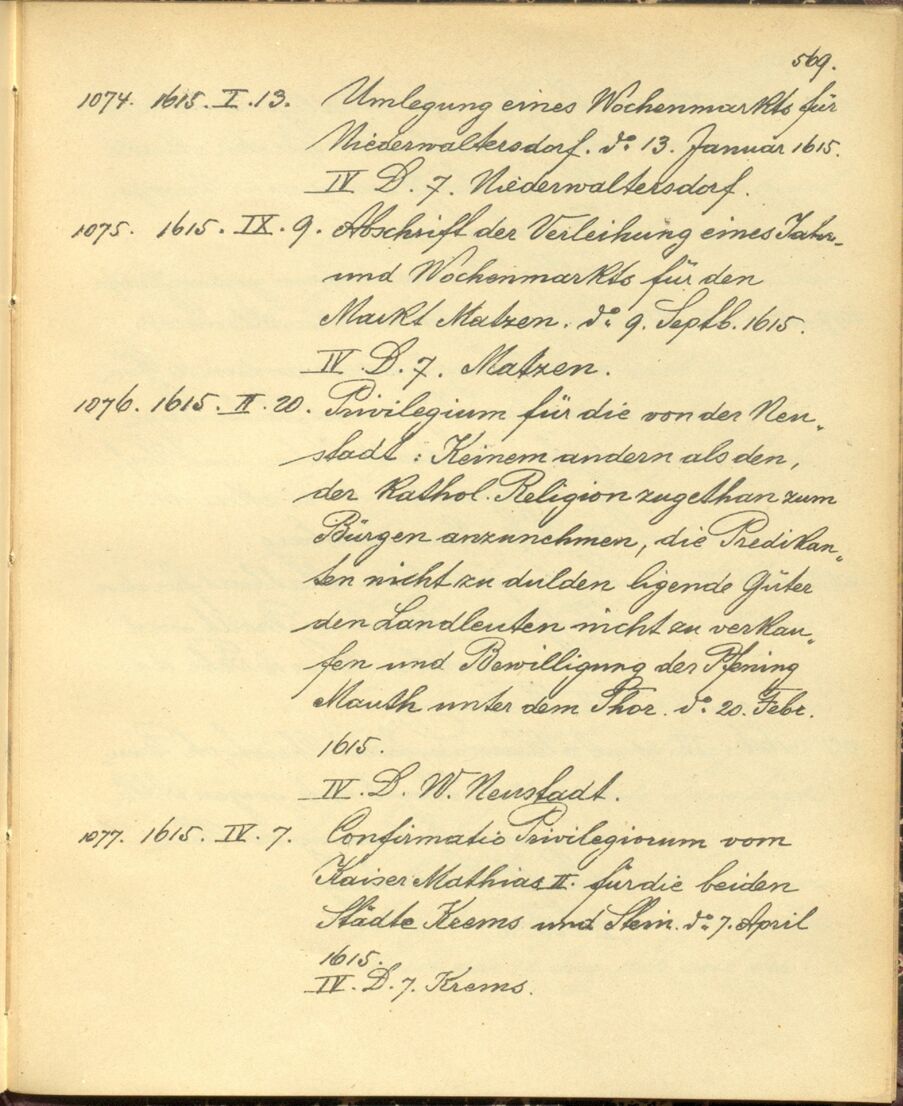 569.
1074. 1615. I. 13. Umlegung eines Wochenmarkts für
Niederwaltersdorf. do 13. Januar 1615.
IV D. 7. Niederwaltersdorf.
1075. 1615. IX. 9. Abschrift der Verleihung eines Jahr-
und Wochenmarkts für den
Markt Matzen. do 9. Septb. 1615.
IV. D. 7. Matzen.
1076. 1615. II. 20. Privilegium für die von der Neu„
stadt: Keinem andern als den,
der Kathol. Religion zugethan zum
Bürgen anzunehmen, die Predikan„
ten nicht zu dulden ligende Güter
den Landleuten nicht zu verkau„
fen und Bewilligung der Pfening
Mauth unter dem Thor. do 20. Febr.
1615.
IV. D. W. Neustadt.
1077. 1615. IV. 7. Confirmatio Privilegiorum vom
Kaiser Mathias II. für die beiden
Städte Krems und Stein. do 7. April
1615.
IV. D. 7. Krems.